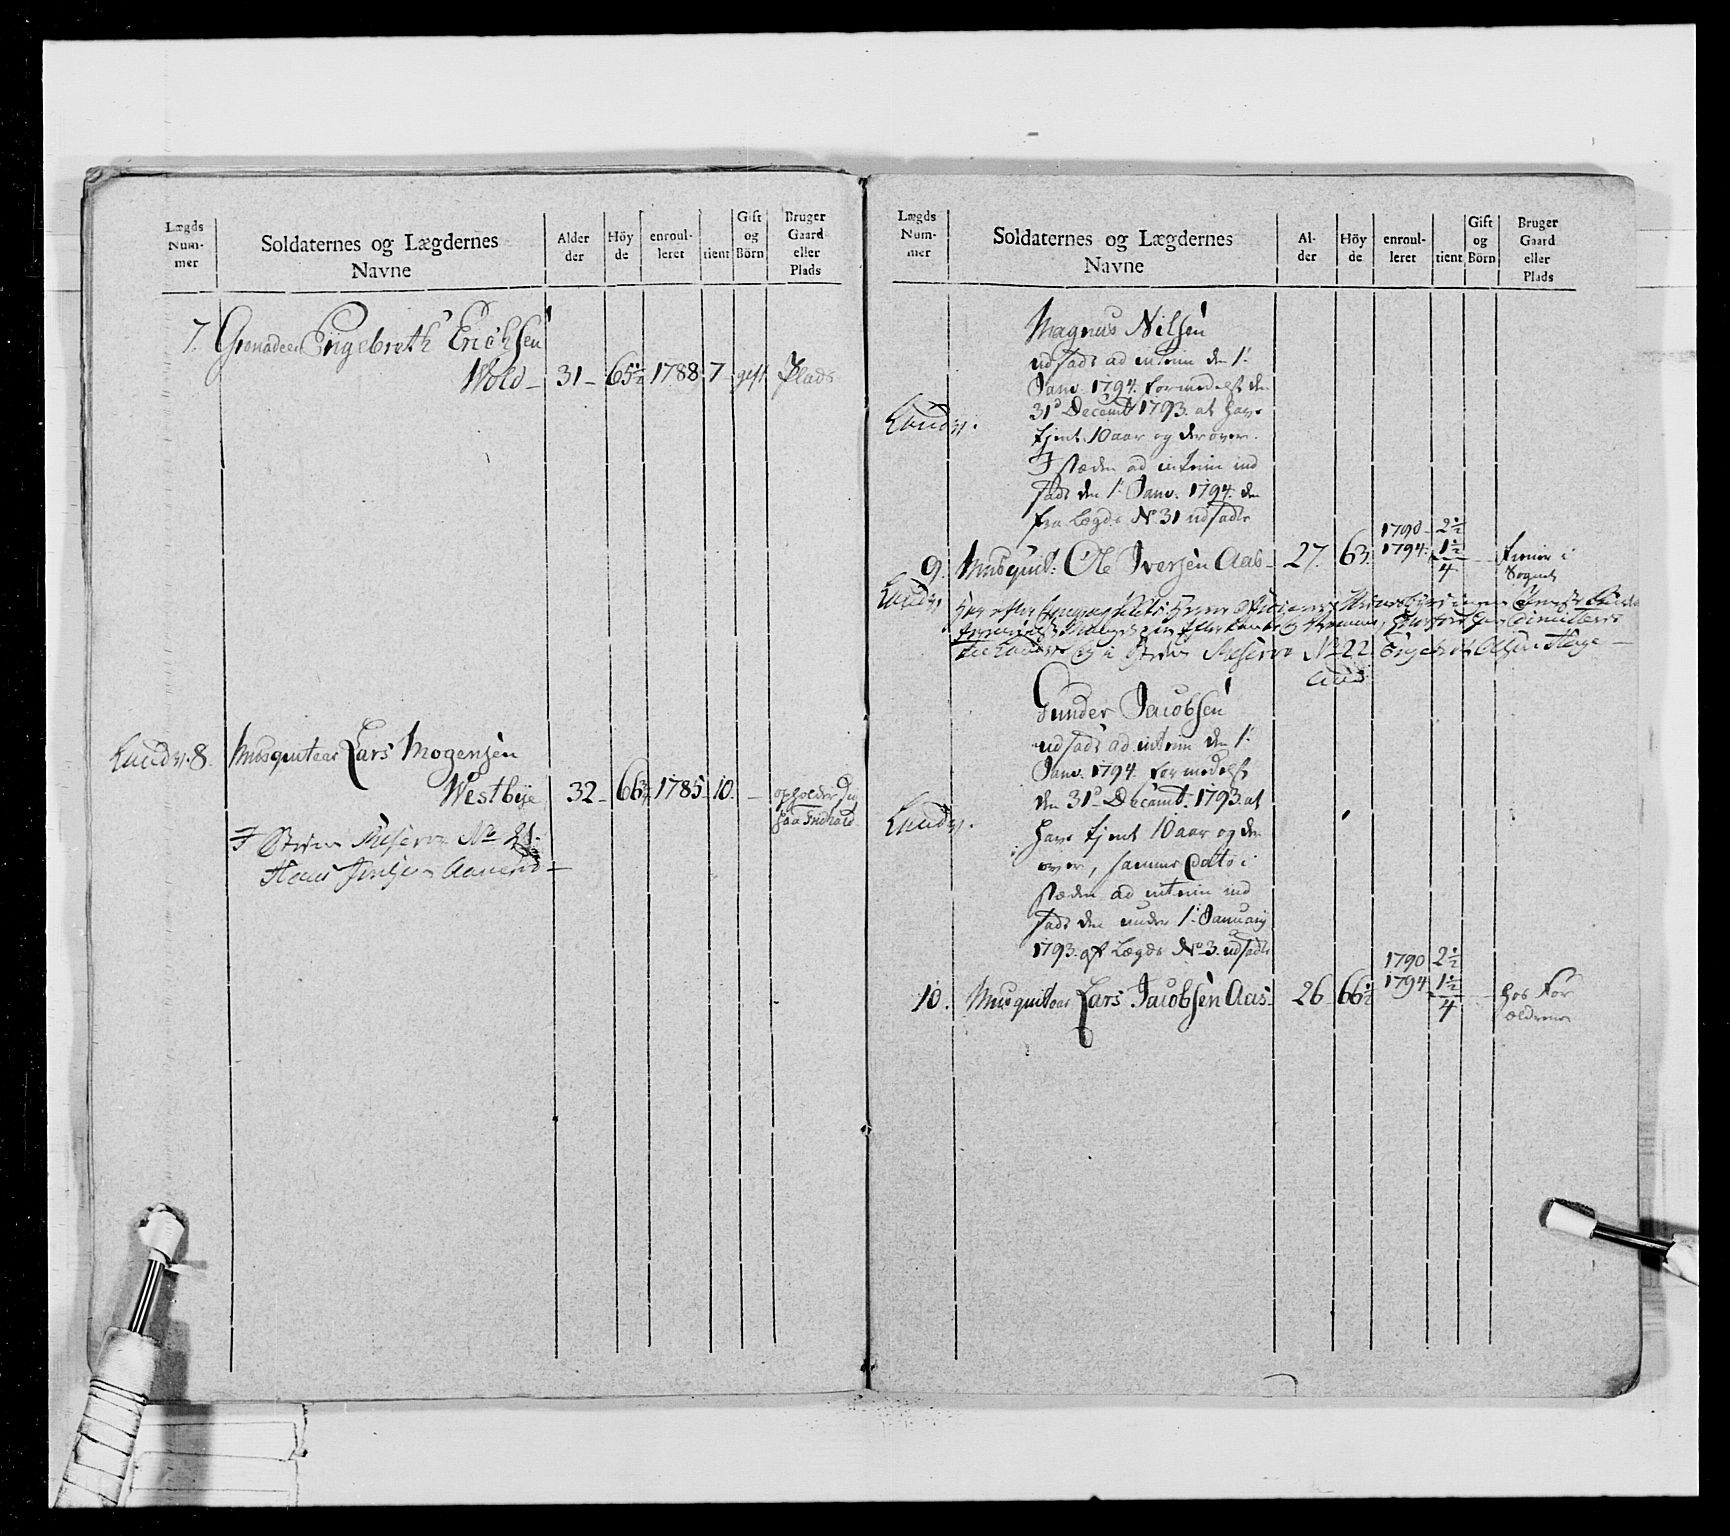 Lægds
Num-
mer
Soldaternes og Lægdernes
Navne
Alder
der
Höy
de
enroul-
leret
tient
Gift
og
Börn
Bruger
Gaard
eller
Plads
7. Grenadeer Engebreth Erichsen
Wold 31 65½ 1788 7 gift Plads
Landv. 8. Musqueteer Lars Mogensen
Westbye 32 66¾ 1785 10. opholder sig
paa
I Steden Reserve No 21.
Hans Jensen
Lægds
Num-
mer
Soldaternes og Lægdernes
Navne
Al-
der
Höy
de
enroul-
leret
tient
Gift
og
Börn
Bruger
Gaard
eller
Plads
Magnus Nilsen
udsadt ad interim den 1:
Janv. 1794. formedelst den
31d Decembr 1793. at have
Landv. tjent 10 aar og derover.
I stæden ad interim ind
sadt den 1: Janv. 1794. den
fra Lægd No 31 udsadte
1790 2½
9. Musquet. Ole Iversen Aas 27. 63. 1794. 1½ tiener i
4 Sognet
Landv.
Reserve No 22
Gunder Jacobsen
udsadt ad interim den 1:
Janv. 1794. formedelst
den 31d Decembr. 1793. at
Landv. have tjent 10 aar og der
over, samme Dato i
stæden ad interim ind
sadt den under 1: January
1793. af Lægds No 3. udsadte
1790 2½
10. Musqueteer Lars Jacobsen Aas 26 66½ 1794 1½ hos For
4 ældrene